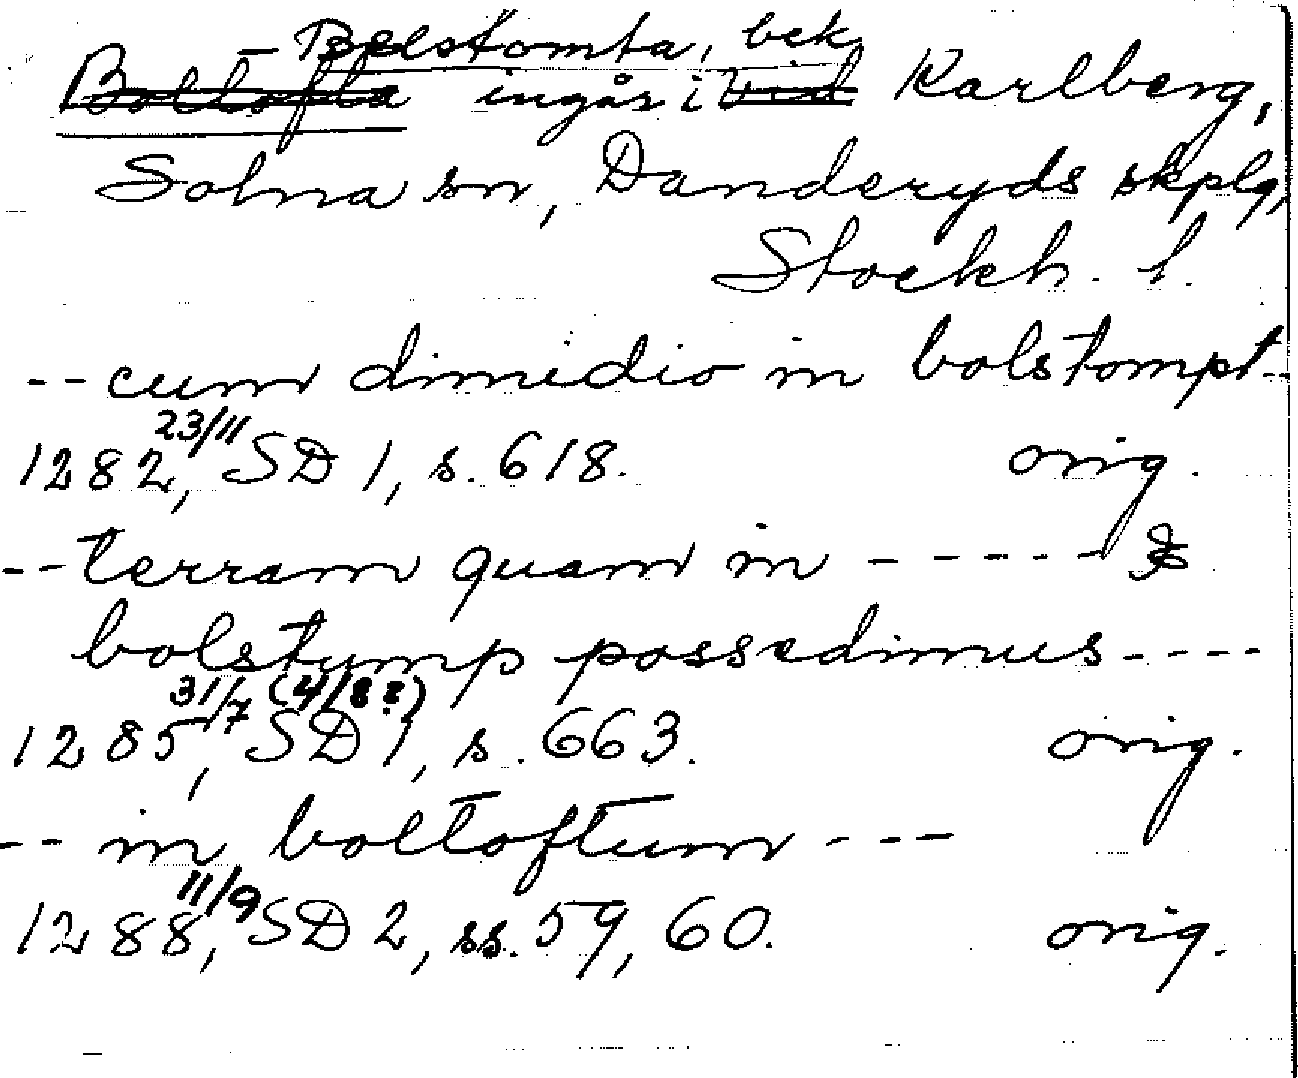 – Bolstomta, bek.
Boltofta ingår i vid Karlberg,
Solna sn, Danderyds skplg,
Stockh. l.
-- cum dimidio in bolstompt--
23/11
1282, SD 1, s. 618. orig.
-- terram quam in ------ &
bolstump possedimus----
31/7 (4/8?)
1285, SD 1, s. 663. orig.
-- in boltoftum ---
11/9
1288, SD 2, ss. 59, 60. orig.